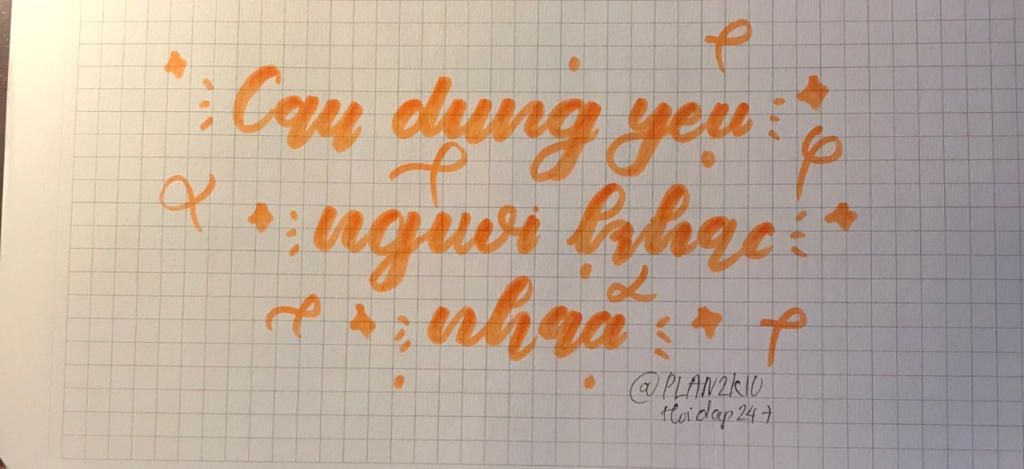 Cau dung yeu
nguoi khac
nha
@PLAN2K10
Hoidap247